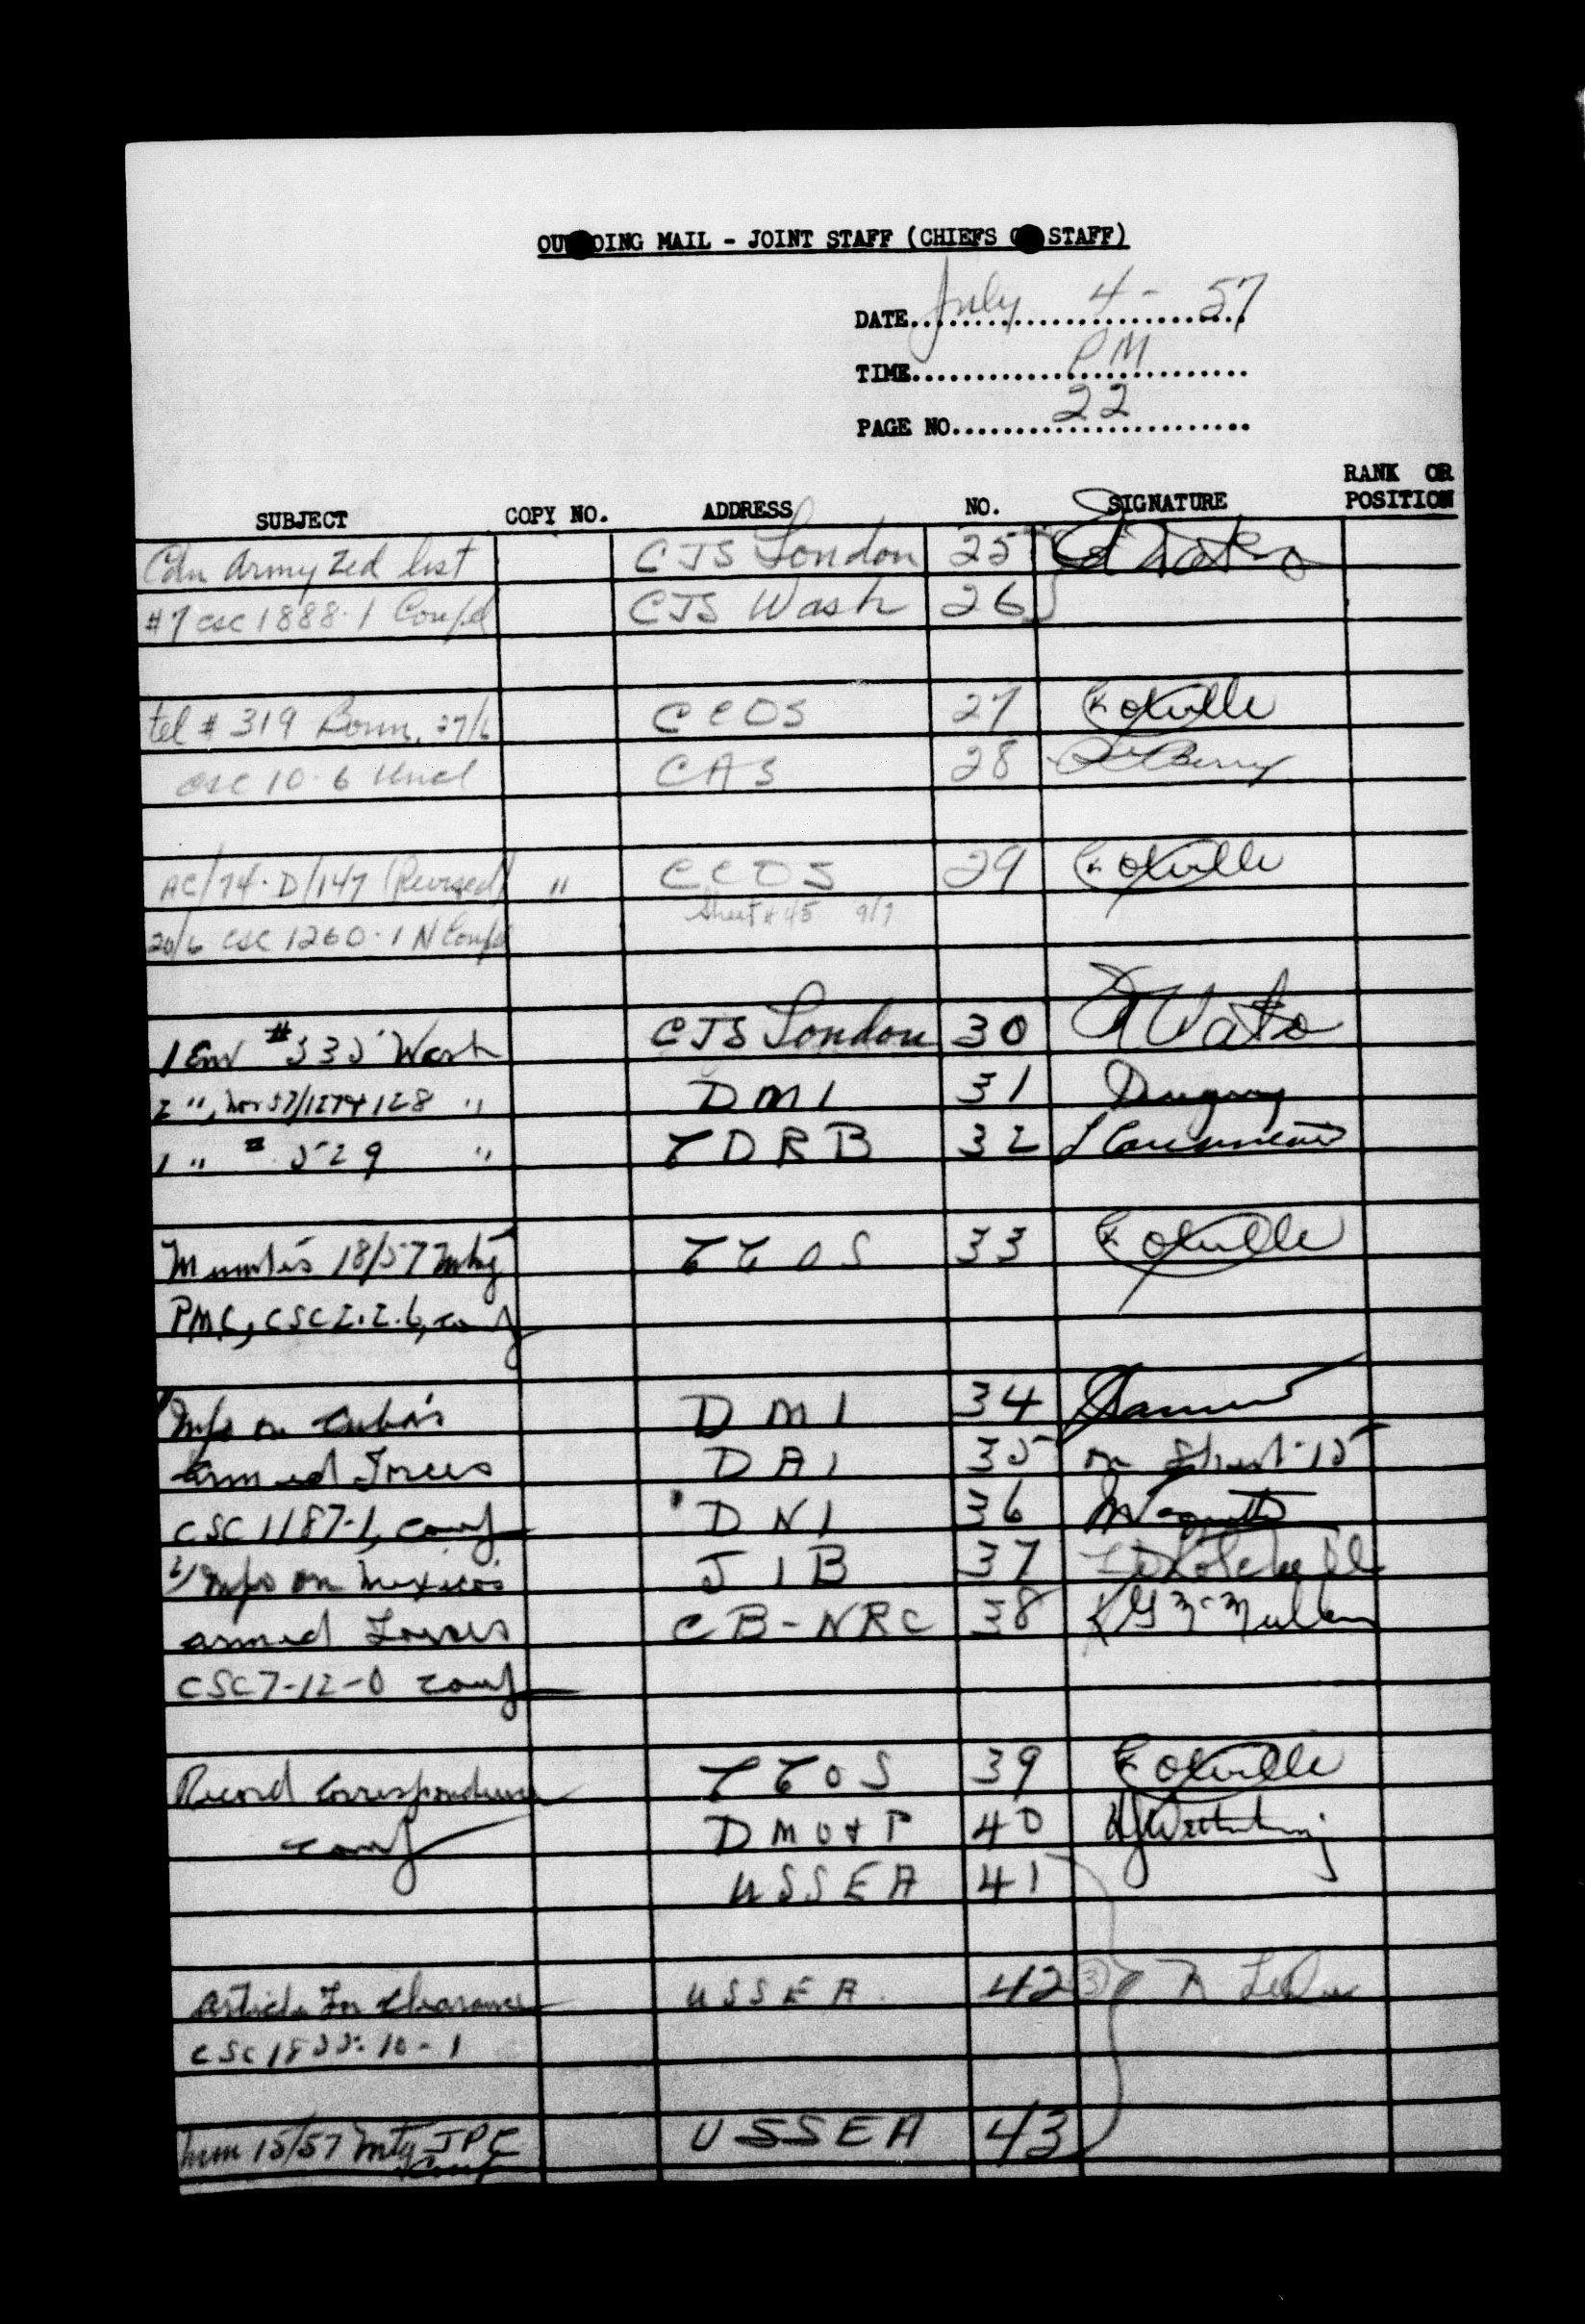 OUTGOING MAIL - JOINT STAFF (CHIEFS OF STAFF)
DATE July 4 - 57
TIME PM
PAGE NO. 22
SUBJECT COPY NO. ADDRESS NO. SIGNATURE RANK OR POSITION
Cdn Army Zed list CJS London 25
#7 csc 1888-1 Conf'd CJS Wash 26
tel # 319 Bonn, 27/6 CCOS 27
csc 10-6 Uncl CAS 28
AC/74-D/147 (Revised) " CCOS 29
Sheet # 45 9/7
20/6 csc 1260-1 N Conf'd
1 Env # 535 Wash CJS London 30
2 ", " DMI 31
1 " # 529 " CDRB 32
Minutes 18/57 mtg CCOS 33
PMC, CSC 2.2.6, conf
1/ Info on Cuba's DMI 34
Armed Forces DAI 35 on Sheet-15
CSC 1187-1, conf DNI 36
2/ Info on Mexico's JIB 37
armed Forces CB-NRC 38 McMullen
CSC 7-12-0 conf
Record Correspondence CCOS 39
conf DMO & P 40
USSEA 41
Article for Clearance USSEA 42 3
CSC 1855-10-1
min 15/57 mtg JPC USSEA 43
Conf